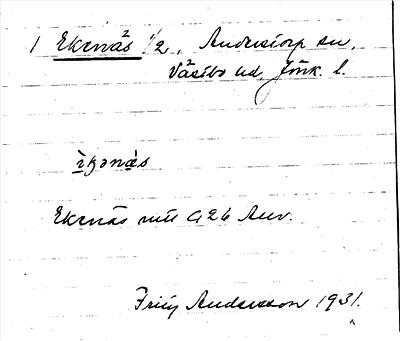 1 Ekenäs 1/2, Anderstorp sn,
Västbo hd, Jönk. l.
ìkənä̀s
Ekenäs mtl G26 Anv.
Fritz Andersson 1931.